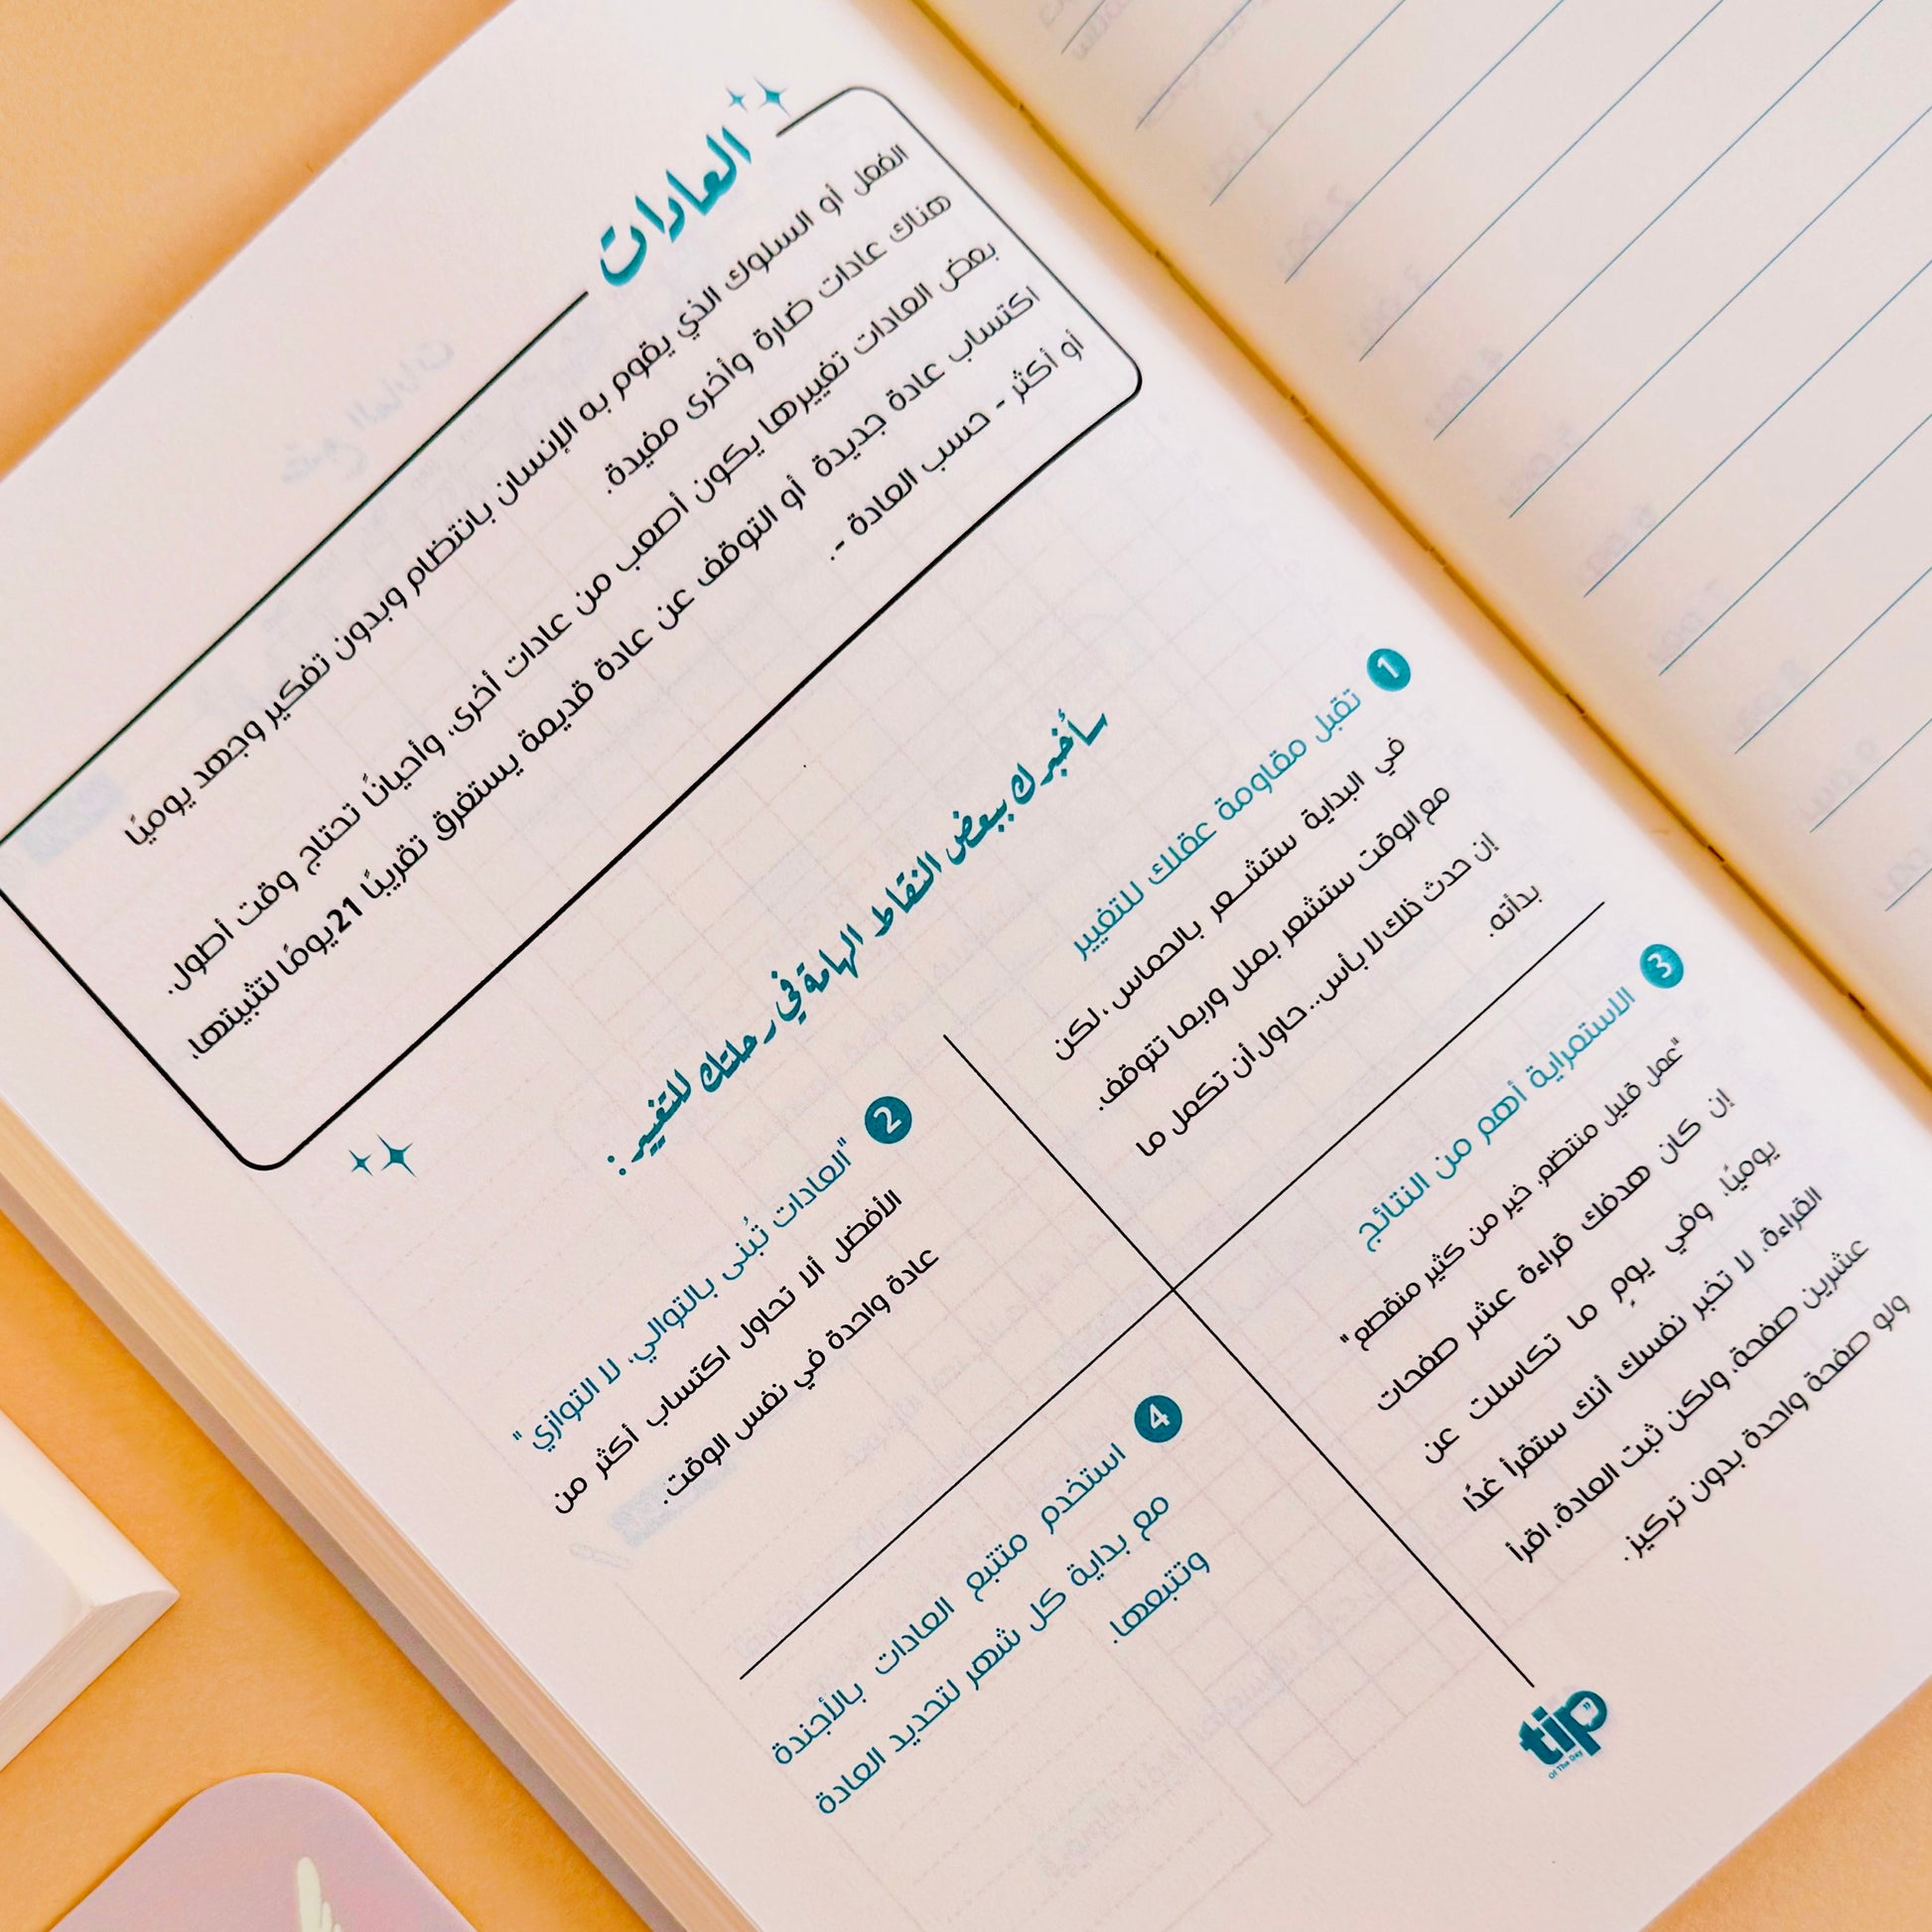 العادات
الفعل أو السلوك الذي يقوم به الإنسان بانتظام وبدون تفكير وجهد يوميًا
هناك عادات ضارة وأخرى مفيدة.
بعض العادات تغييرها يكون أصعب من عادات أخرى، وأحيانًا تحتاج وقت أطول.
اكتساب عادة جديدة أو التوقف عن عادة قديمة يستغرق تقريبًا 21 يومًا لتثبيتها،
أو أكثر - حسب العادة -.
سأُخبرك ببعض النقاط الهامة في رحلتك للتغيير :
1
تقبل مقاومة عقلك للتغيير
في البداية ستشعر بالحماس ، لكن
مع الوقت ستشعر بملل وربما تتوقف.
إن حدث ذلك لا بأس.. حاول أن تكمل ما
بدأته.
2
"العادات تُبنى بالتوالي، لا التوازي"
الأفضل ألا تحاول اكتساب أكثر من
عادة واحدة في نفس الوقت.
3
الاستمراية أهم من النتائج
"عمل قليل منتضم، خير من كثير منقطع"
إن كان هدفك قراءة عشر صفحات
يوميًا، وفي يومٍ ما تكاسلت عن
القراءة، لا تخبر نفسك أنك ستقرأ غدًا
عشرين صفحة، ولكن ثبت العادة، اقرأ
ولو صفحة واحدة بدون تركيز.
4
استخدم متتبع العادات بالأجندة
مع بداية كل شهر لتحديد العادة
وتتبعها.
tip
Of The Day